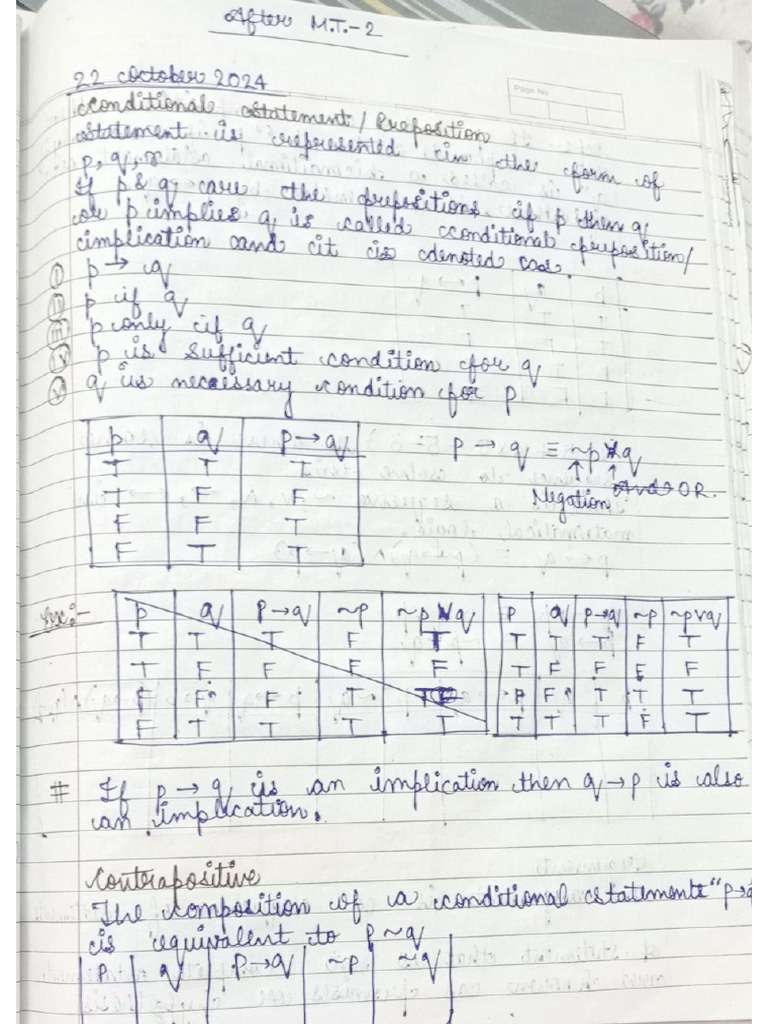 After M.T.-2
Page No.
22 October 2024
Conditional Statement / Preposition
Statement is represented in the form of
p, q, r
If p & q are the prepositions if p then q
or p implies q is called conditional preposition/
implication and it is denoted as.
(i) p → q
(ii) p if q
(iii) p only if q
(iv) p is sufficient condition for q
(v) q is necessary condition for p
p q p → q
T T T
T F F
F F T
F T T
p → q ≡ ~p ∨ q
Negation And OR.
Ex:-
p q p → q ~p ~p ∨ q
T T T F T
T F F F F
F F T T
F T T T T
p q p → q ~p ~p ∨ q
T T T F T
T F F F F
F F T T T
T T T F T
# If p → q is an implication then q → p is also
an implication.
Contrapositive
The composition of a conditional statements "p →
is equivalent to p ~q
p q p → q ~p ~q